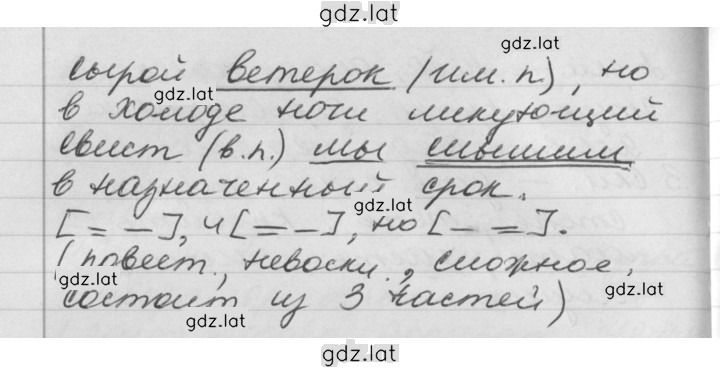 gdz.lat
gdz.lat
сырой ветерок (им. п.), но
gdz.lat
в холоде ночи ликующий
свист (в.п.) мы слышим
в назначенный срок.
gdz.lat
[= —], и [= —], но [— =].
(повест., невоскл., сложное,
gdz.lat
состоит из 3 частей)
gdz.lat
gdz.lat